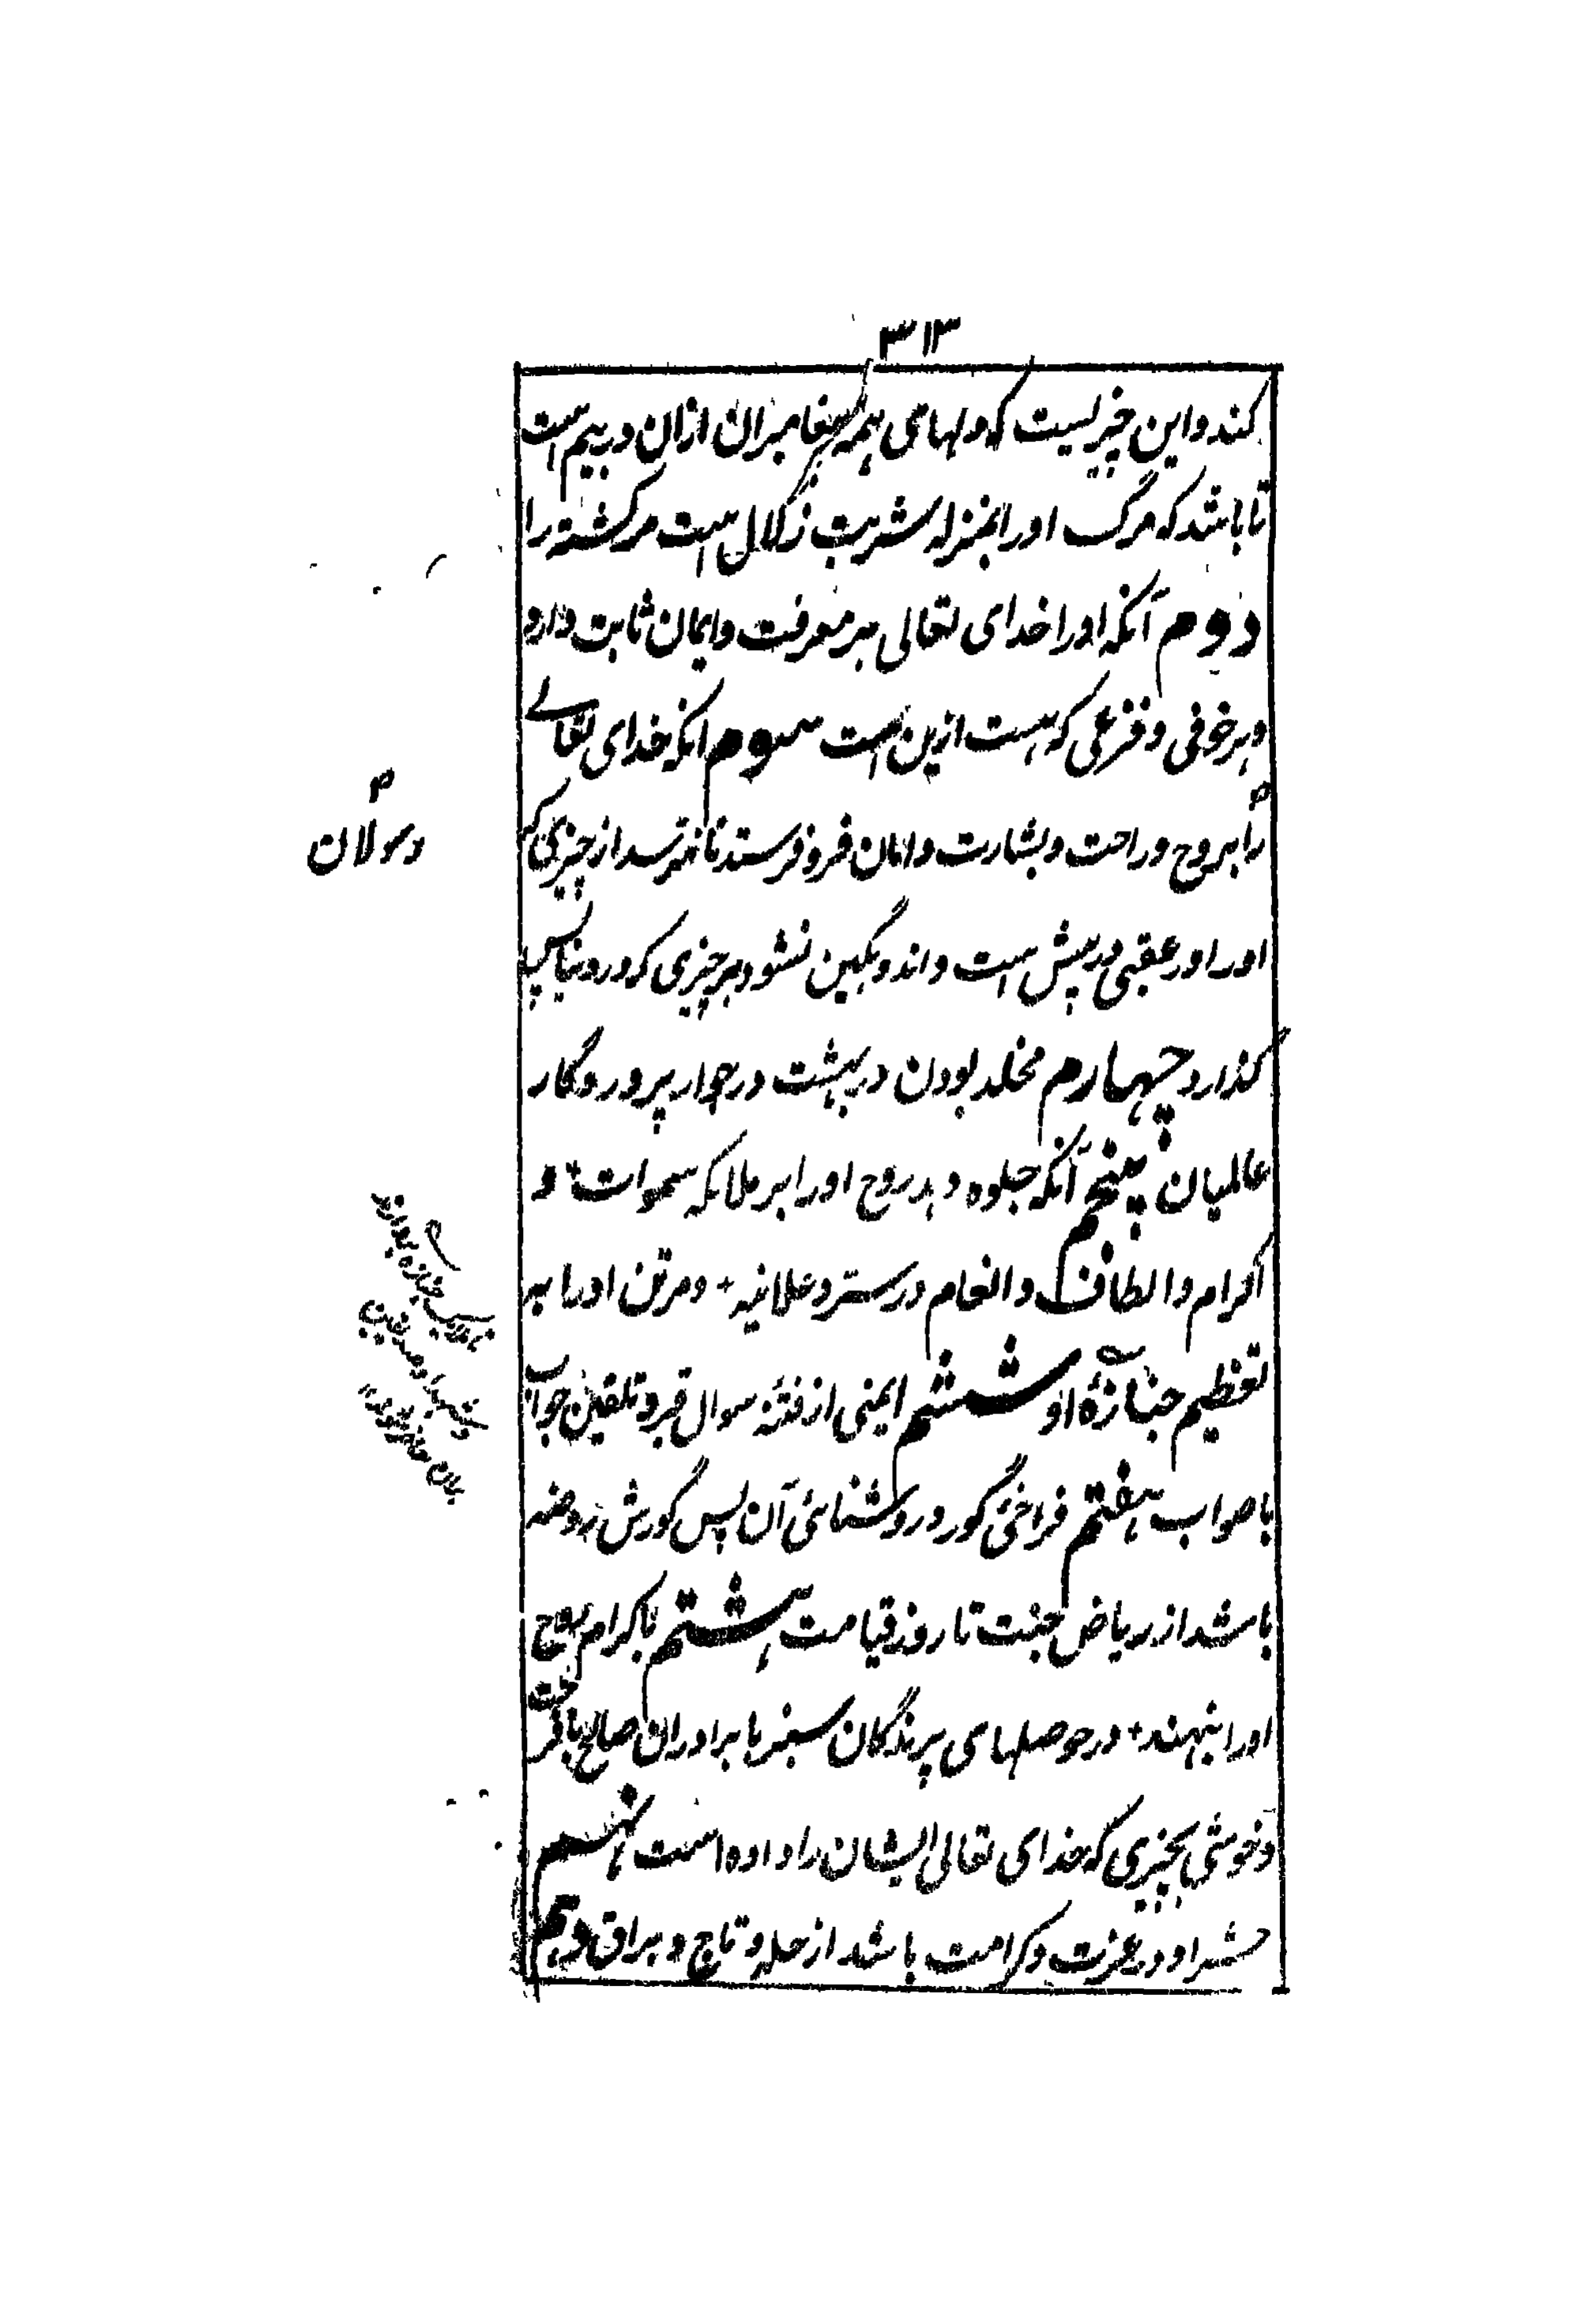 ۳۱۳
کند و این چیزیست که دلهای همه پیغامبران ازان در بیم است
تا باشد که مرگ اورا بمنزله شربت زلال است مر تشنه را
دوم آنکه اورا خدای تعالی بر معرفت و ایمان ثابت دارد
و هر خوفی و فزعی که هست ازین است سوم آنکه خدای تعالے
را بروح و راحت و بشارت و امان فرو فرستد تا نترسد از چیزی که
اورا در عقبی در پیش است و اندوهگین نشود بر چیزی که در دنیا پس
گذارد چهارم مخلد بودن در بهشت در جوار پروردگار
عالمیان پنجم آنکه جلوه دهد روح اورا بر ملائکه سموات و
اکرام و الطاف و انعام در ستر و علانیه + و مر تن اورا به
تعظیم جنازهٔ او ششم ایمنی از فتنهٔ سوال قبر و تلقین جواب
با صواب هفتم فراخی گور و روشنائی آن پس گورش روضه
باشد از ریاض جنت تا روز قیامت هشتم باکرام روح
اورا بنهند + در حوصلهای پرندگان سبز با برادران صالح با فرحت
و خوشی بچیزی که خدای تعالی ایشان را داده است نهم
حشر او در عزت و کرامت باشد از حله و تاج و براق دهم
رسولان